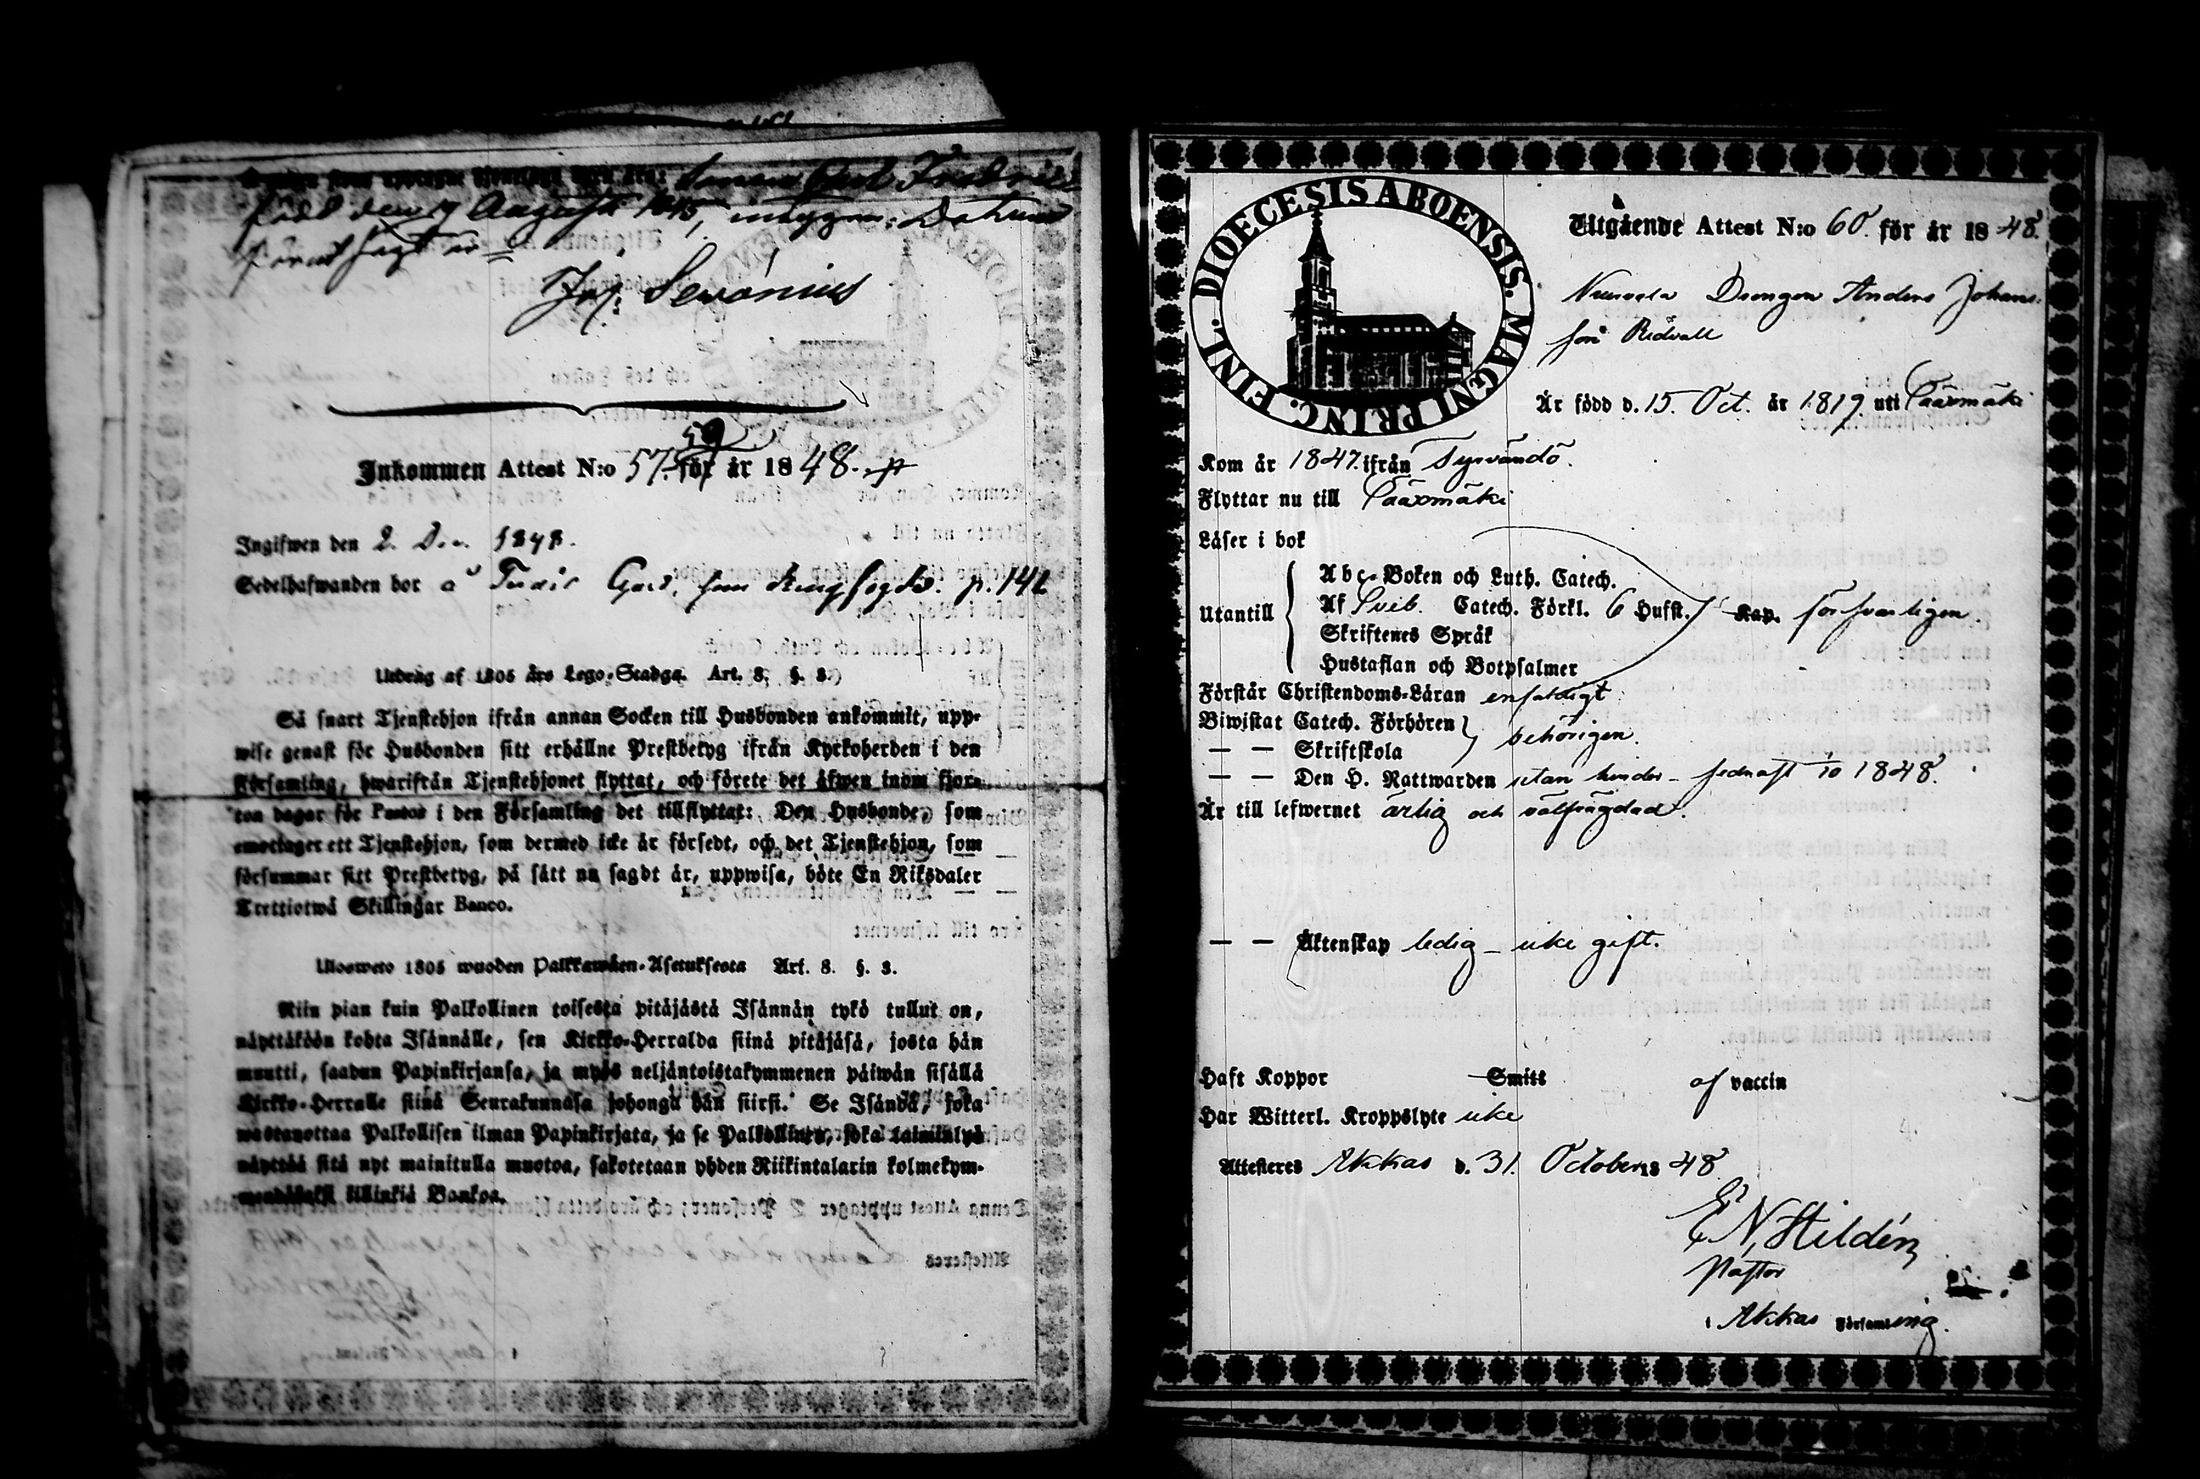 född den 19 Augusti 1845, Datum
förut sagt är
Jos: Sevónius
59
Inkommen Attest N:o 57. för år 1848.
Ingifwen den 2. Dec. 1848.
Sedelhafwanden bor å Gård, hos p. 142
Utdrag af 1805 års Lego-Stadga. Art. 8. §. 3.
Så snart Tjenstehjon ifrån annan Socken till Husbonden ankommit, upp-
wise genast för Husbonden sitt erhållne Prestbetyg ifrån Kyrkoherden i den
Församling, hwarifrån Tjenstehjonet flyttat, och förete det äfwen inom fjor-
ton dagar för Pastor i den Församling det tillflyttat: Den Husbonde, som
emottager ett Tjenstehjon, som dermed icke är försedt, och det Tjenstehjon, som
försummar sitt Prestbetyg, på sätt nu sagdt är, uppwisa, böte En Riksdaler
Trettiotwå Skillingar Banco.
Ulosweto 1805 wuoden Palkkawäen-Asetuksesta Art. 8. §. 3.
Niin pian kuin Palkollinen toisesta pitäjästä Isännän tykö tullut on,
näyttäköön kohta Isännälle, sen Kirkko-Herralda siinä pitäjäsä, josta hän
muutti, saadun Papinkirjansa, ja myös neljäntoistakymmenen päiwän sisällä
Kirkko-Herralle siinä Seurakunnasa johonga hän siirsi. Se Isändä, joka
wastanottaa Palkollisen ilman Papinkirjata, ja se Palkollinen, joka laiminlyö
näyttää sitä nyt mainitulla muotoa, sakotetaan yhden Riikintalarin kolmekym-
mendäkaksi killinkiä Bankoa.
DIOECESIS ABOENSIS. MAGNI PRINC. FINL.
Utgående Attest N:o 60. för år 1848.
Drengen Anders Johans-
son Ridvall
Är född d. 15. Oct. år 1819. uti Pääxmäki
Kom år 1847. ifrån Tyrvändö.
Flyttar nu till Pääxmäki
Läser i bok
Abc-Boken och Luth. Catech.
Utantill Af Sveb. Catech. Förkl. 6 Hufst. Kap. försvarligen.
Skriftenes Språk
Hustaflan och Botpsalmer
Förstår Christendoms-Läran enfaldigt
Biwistat Catech. Förhören
— — Skriftskola behörigen.
— — Den H. Nattwarden utan hinder - sednast 1848.
Är till lefwernet ärlig och välfrägdad.
— — Äktenskap ledig - icke gift.
Haft Koppor Smitt af vaccin
Har Witterl. Kroppslyte icke
Attesteres Akkas d. 31. October 1848
E N. Hildén
Pastor
i Akkas Församling.